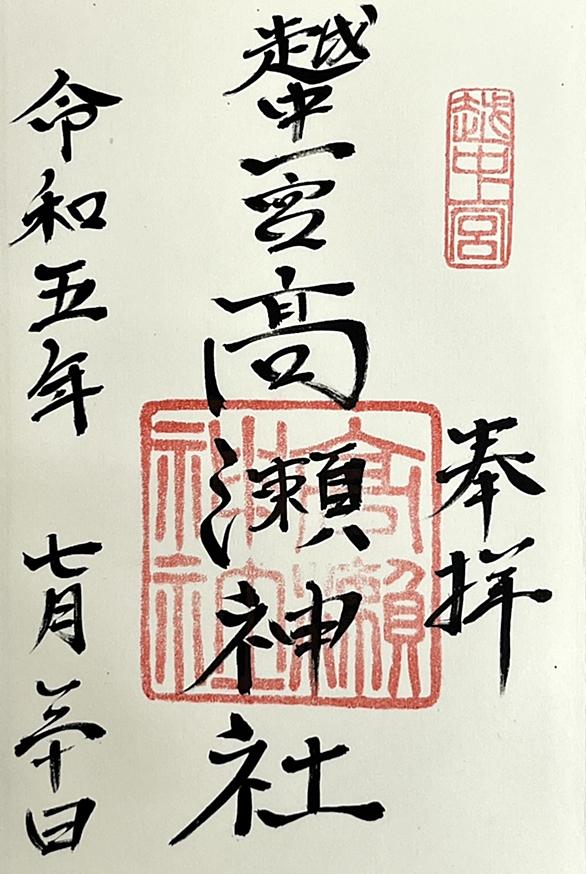 越中一宮
奉拝
越中一宮高瀬神社
高瀬
神社
令和五年 七月三十日